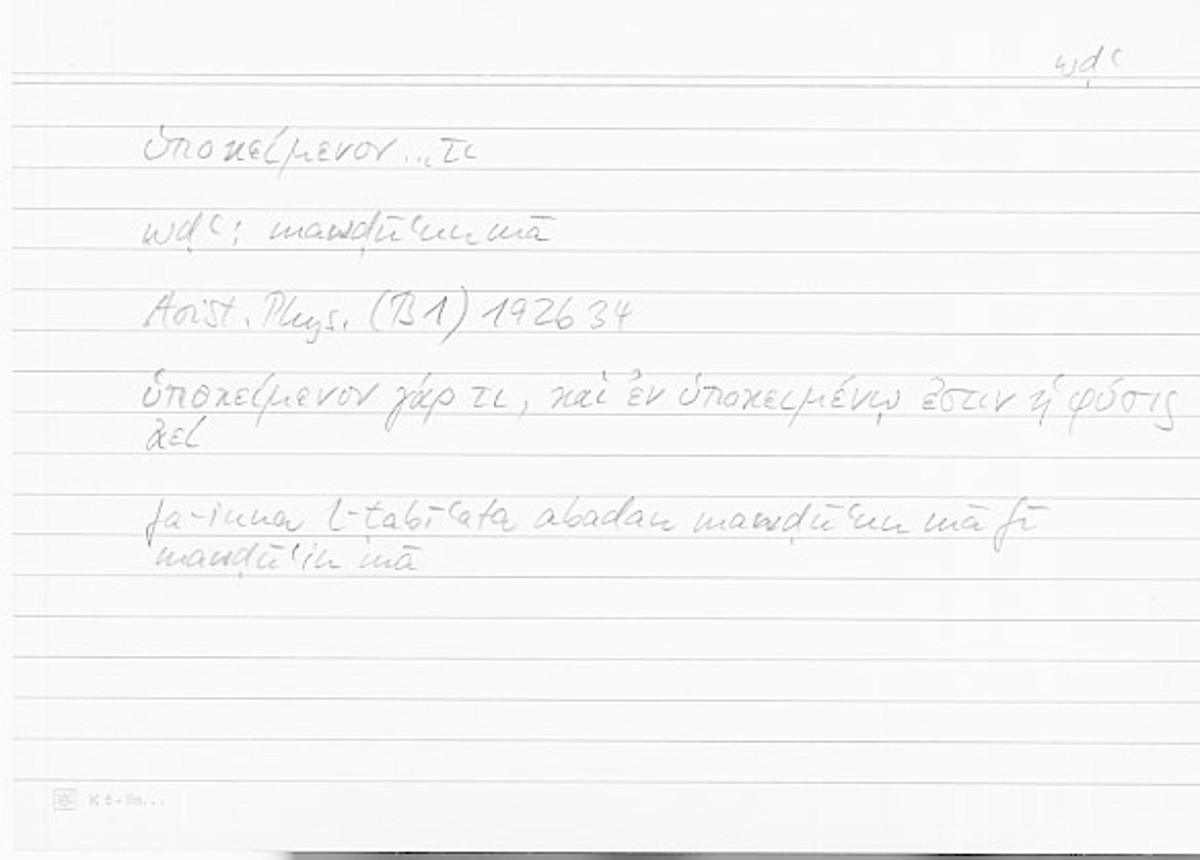 wḍʿ
ὑποκείμενον ... τι
wḍʿ: mawḍūʿun mā
Arist. Phys. (B1) 192b34
ὑποκείμενον γάρ τι, καὶ ἐν ὑποκειμένῳ ἐστιν ἡ φύσις
ἀεί
fa-inna l-ṭabīʿata abadan mawḍūʿun mā fī
mawḍūʿin mā